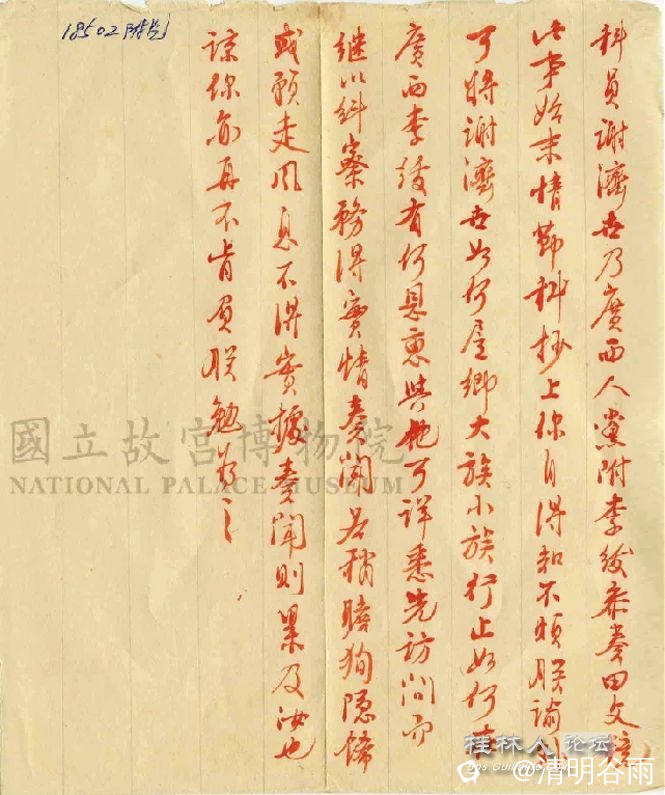 18502附片
科員謝濟世乃廣西人黨附李紱叅奏田文鏡
此事始末情節科抄上你自得知不煩朕諭
可將謝濟世如何居鄉大族小族行止如何在
廣西李紱有何恩惠與他可詳悉先訪問而
繼以糾察務得實情奏聞若稍瞻狥隱飾
或預走風息不得實據奏聞則累及汝也
諒你亦再不肯負朕勉為之
國立故宮博物院
NATIONAL PALACE MUSEUM
桂林人论坛
@清明谷雨